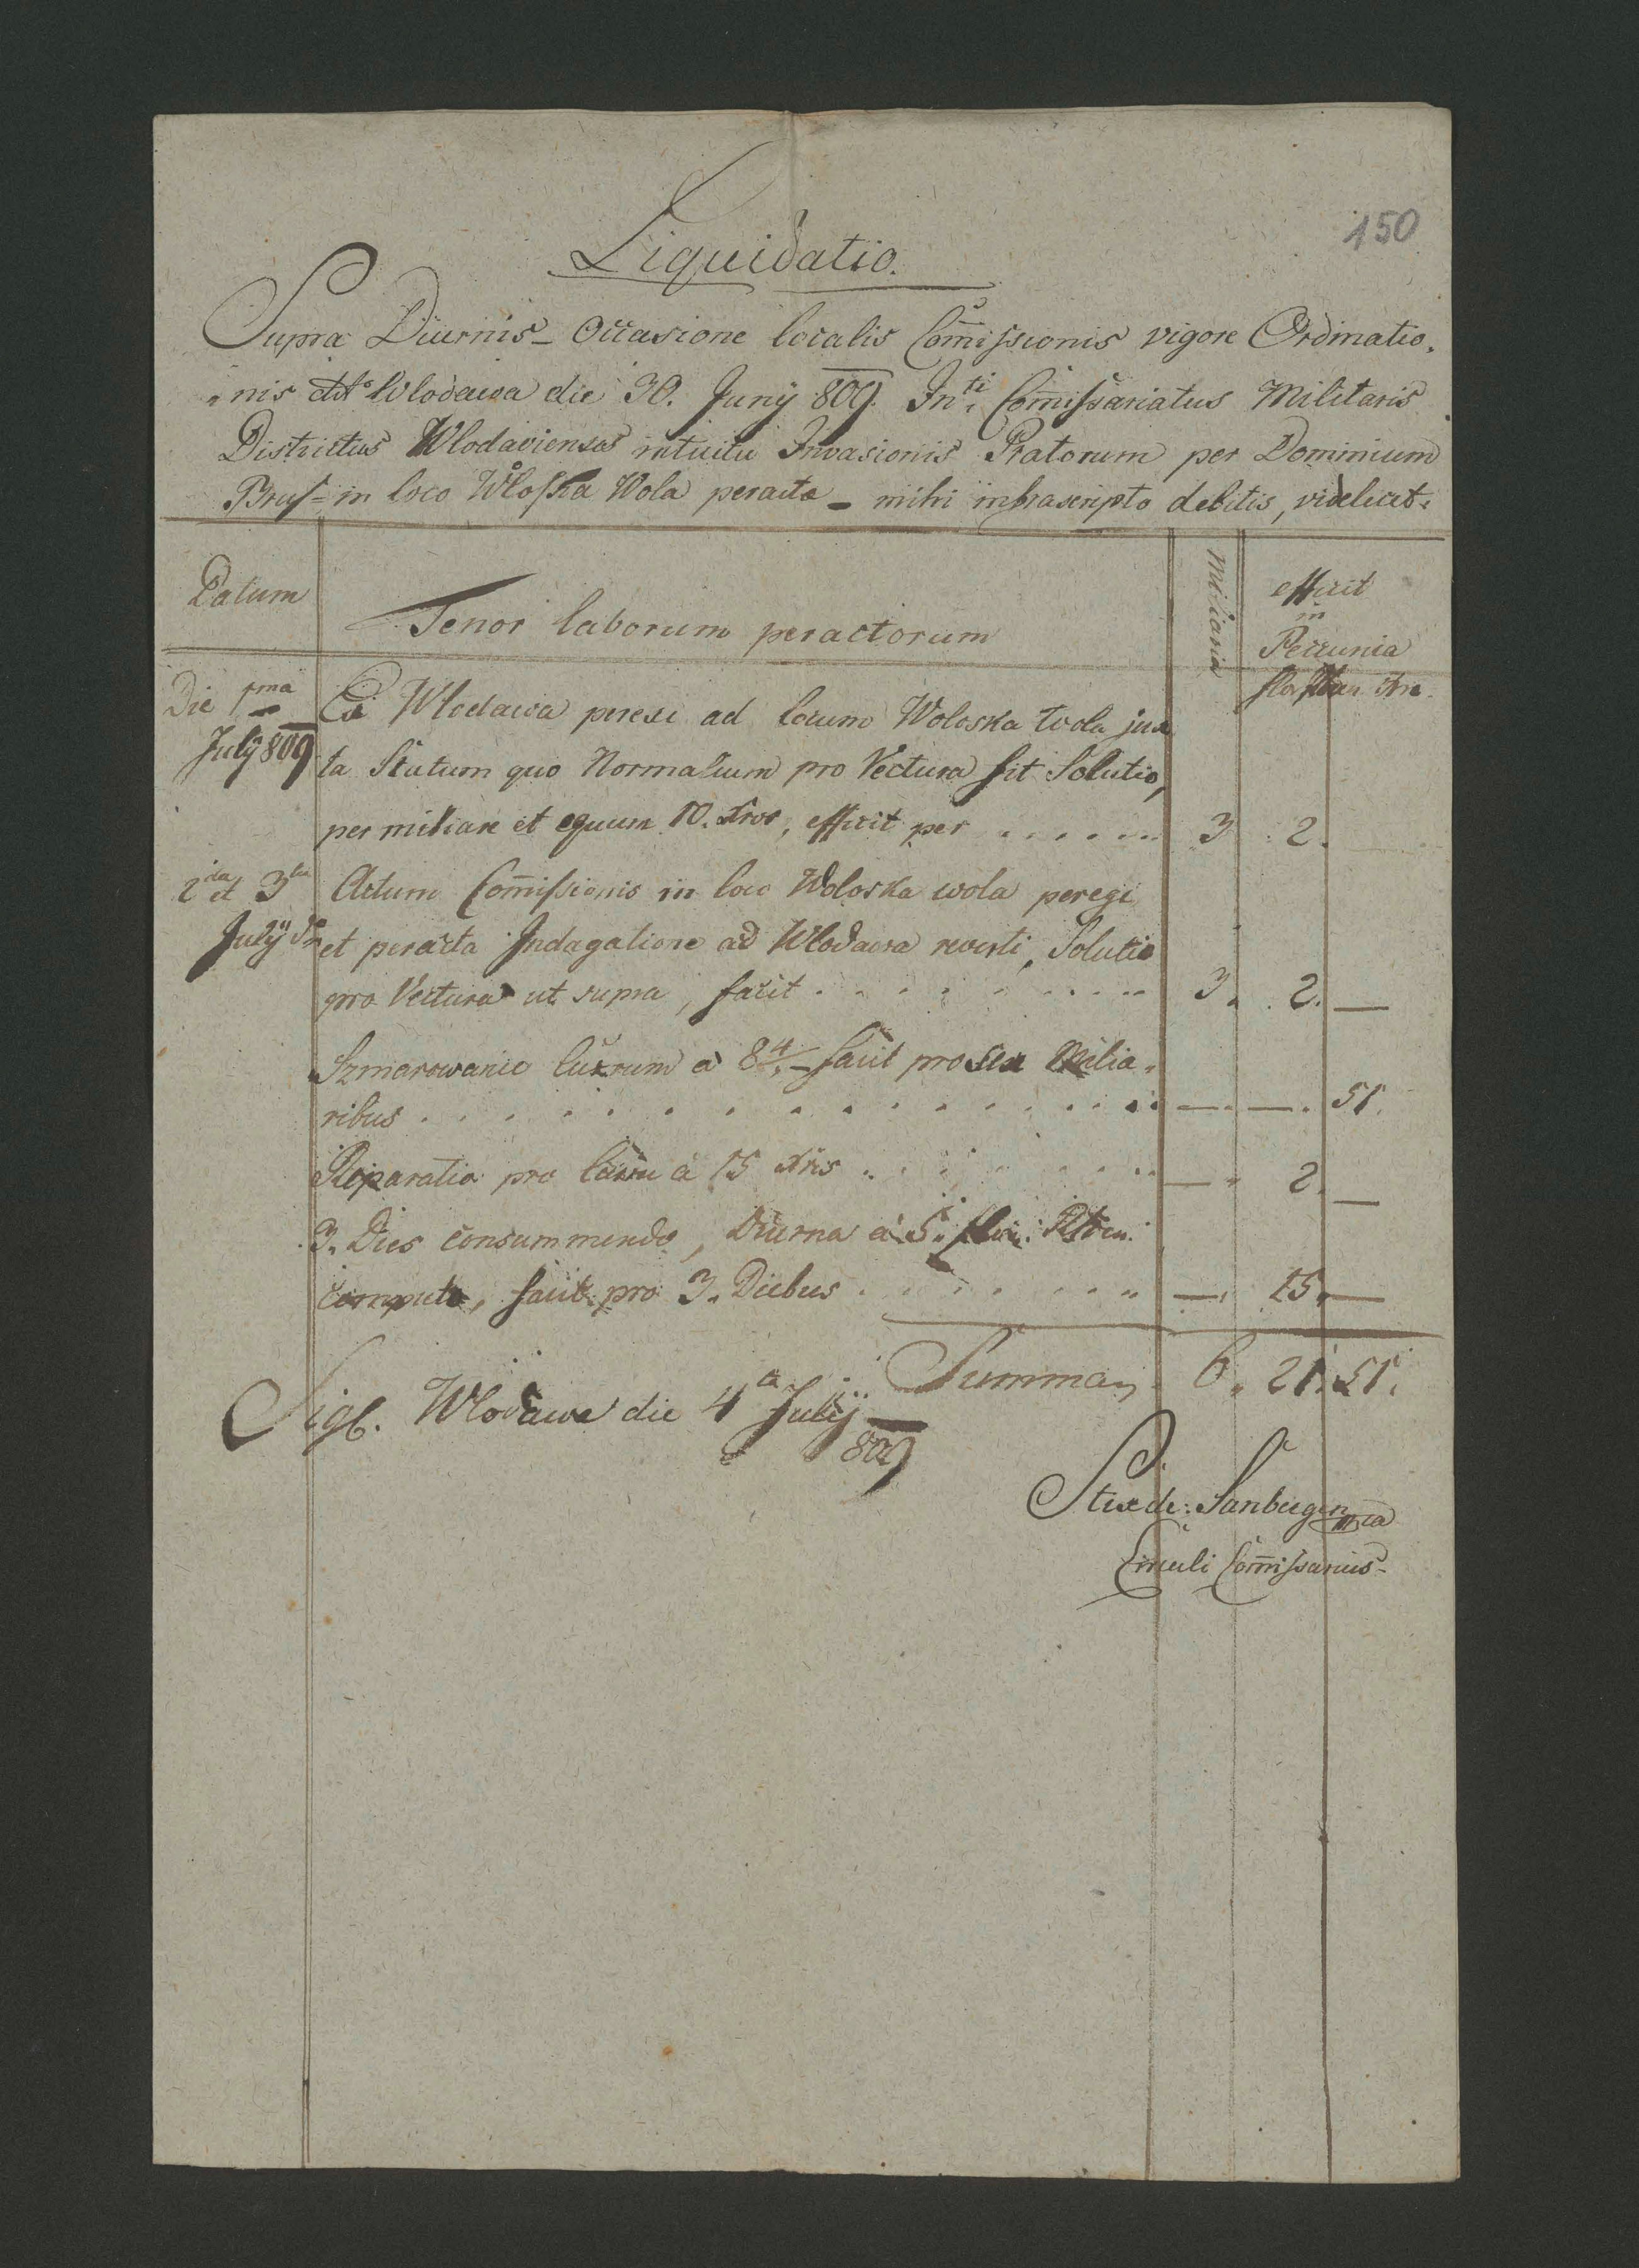 150
Liquidatio.
Supra Diurnis – Occasione localis Com̄issionis vigore Ordinatio„
„nis dtto Wlodawa die 30. Juny 809. Inti Com̄issariatus Militaris
Districtus Wlodaviensis intuitu Invasionis Pratorum per Dominium
Brus= in loco Wloska Wola peracta – mihi infrascripto debitis, videlicet:
Datum
Tenor laborum peractorum
Miliaria
efficit
in
Pecunia
Die 1ma
July 809
Ex Wlodawa perexi ad locum Woloska wola jux
ta Statum quo Normalium pro Vectura fit Solutio,
per miliare et equum 10. Xros, efficit per . . . . . . 3 . 2.
2da et 3tia
July do
Actum Com̄issionis in loco Woloska wola peregi
et peracta Indagatione ad Wlodawa reverti, Solutio
pro Vectura ut supra, facit . . . . . . . . . . 3. . 2. —
Szmarowanie curruum a 8 4/ – facit pro Miliа„
ribus . . . . . . . . . . . . . . . . —. —. 51.
Reparatio pro curru a 15 Xris . . . . . . . . — . 2. —
3. Dies consummendo, Diurna a 5. flor:
computo, facit pro 3. Diebus . . . . . . . . —. 15. —
Summa 6. 21. 51.
Sigl. Wlodawa die 4a July
809
Sanbergen mpia
Circuli Com̄issarius